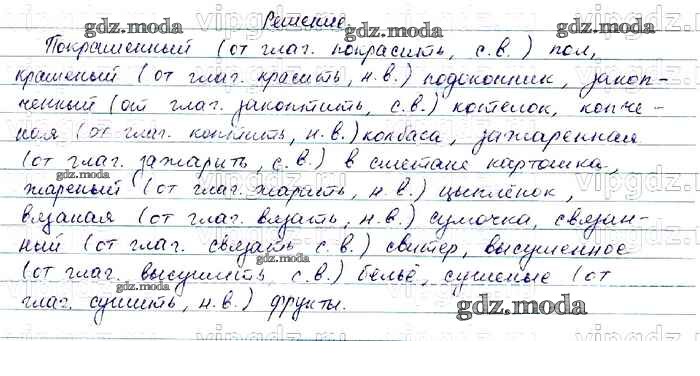 Решение.
Покрашенный (от глаг. покрасить, с.в.) пол,
крашеный (от глаг. красить, н.в.) подоконник, закоп-
ченный (от глаг. закоптить, с.в.) котелок, копче-
ная (от глаг. коптить, н.в.) колбаса, зажаренная
(от глаг. зажарить, с.в.) в сметане картошка,
жареный (от глаг. жарить, н.в.) цыплёнок,
вязаная (от глаг. вязать, н.в.) сумочка, связан-
ный (от глаг. связать с.в.) свитер, высушенное
(от глаг. высушить, с.в.) бельё, сушеные (от
глаг. сушить, н.в.) фрукты.
gdz.moda
gdz.moda
gdz.moda
gdz.moda
gdz.moda
gdz.moda
gdz.moda